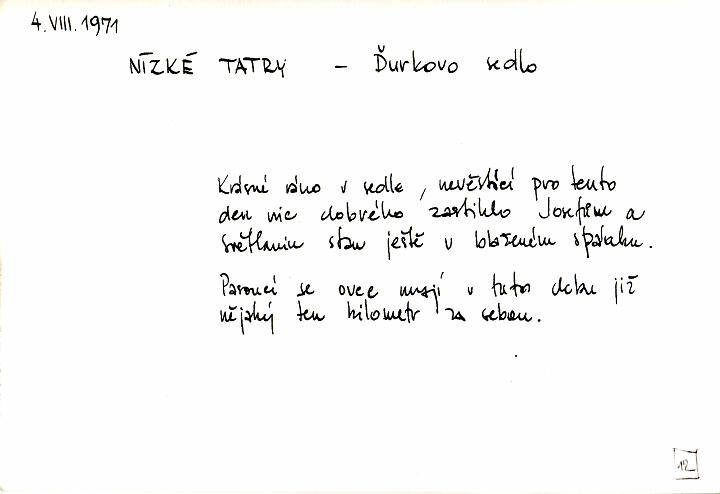 4.VIII.1971
NÍZKÉ TATRY – Ďurkovo sedlo
Krásné ráno v sedle, nevěštící pro tento
den nic dobrého zastihlo Josefův a
Světlanin stan ještě v blaženém spánku.
Pasoucí se ovce mají v tuto dobu již
nějaký ten kilometr za sebou.
12